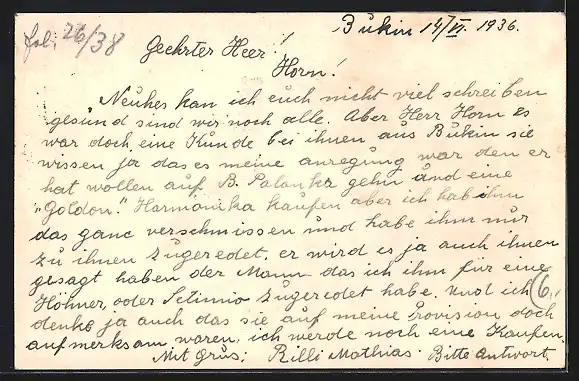 Bukin 14/VI. 1936.
26/38
Geehrter Heer!
Horn!
Neuhes kan ich euch nicht viel schreiben
gesund sind wir noch alle. Aber Herr Horn Es
war doch eine Kunde bei ihnen aus Bukin sie
wissen ja das es meine anregung war den er
hat wollen auf B. Palanka gehn und eine
"Goldon." Harmonika kaufen aber ich hab ihm
das ganc verschmissen und habe ihm nur
zu ihnen zugeredet, er wird es ja auch ihnen
gesagt haben der Mann das ich ihm für eine
Höhner, oder Setimio zugeredet habe. Und ich
denke ja auch das sie auf meine Provision doch
aufmerksam waren, ich werde noch eine Kaufen.
Mit grus: Rilli Mathias. Bitte Antwort.